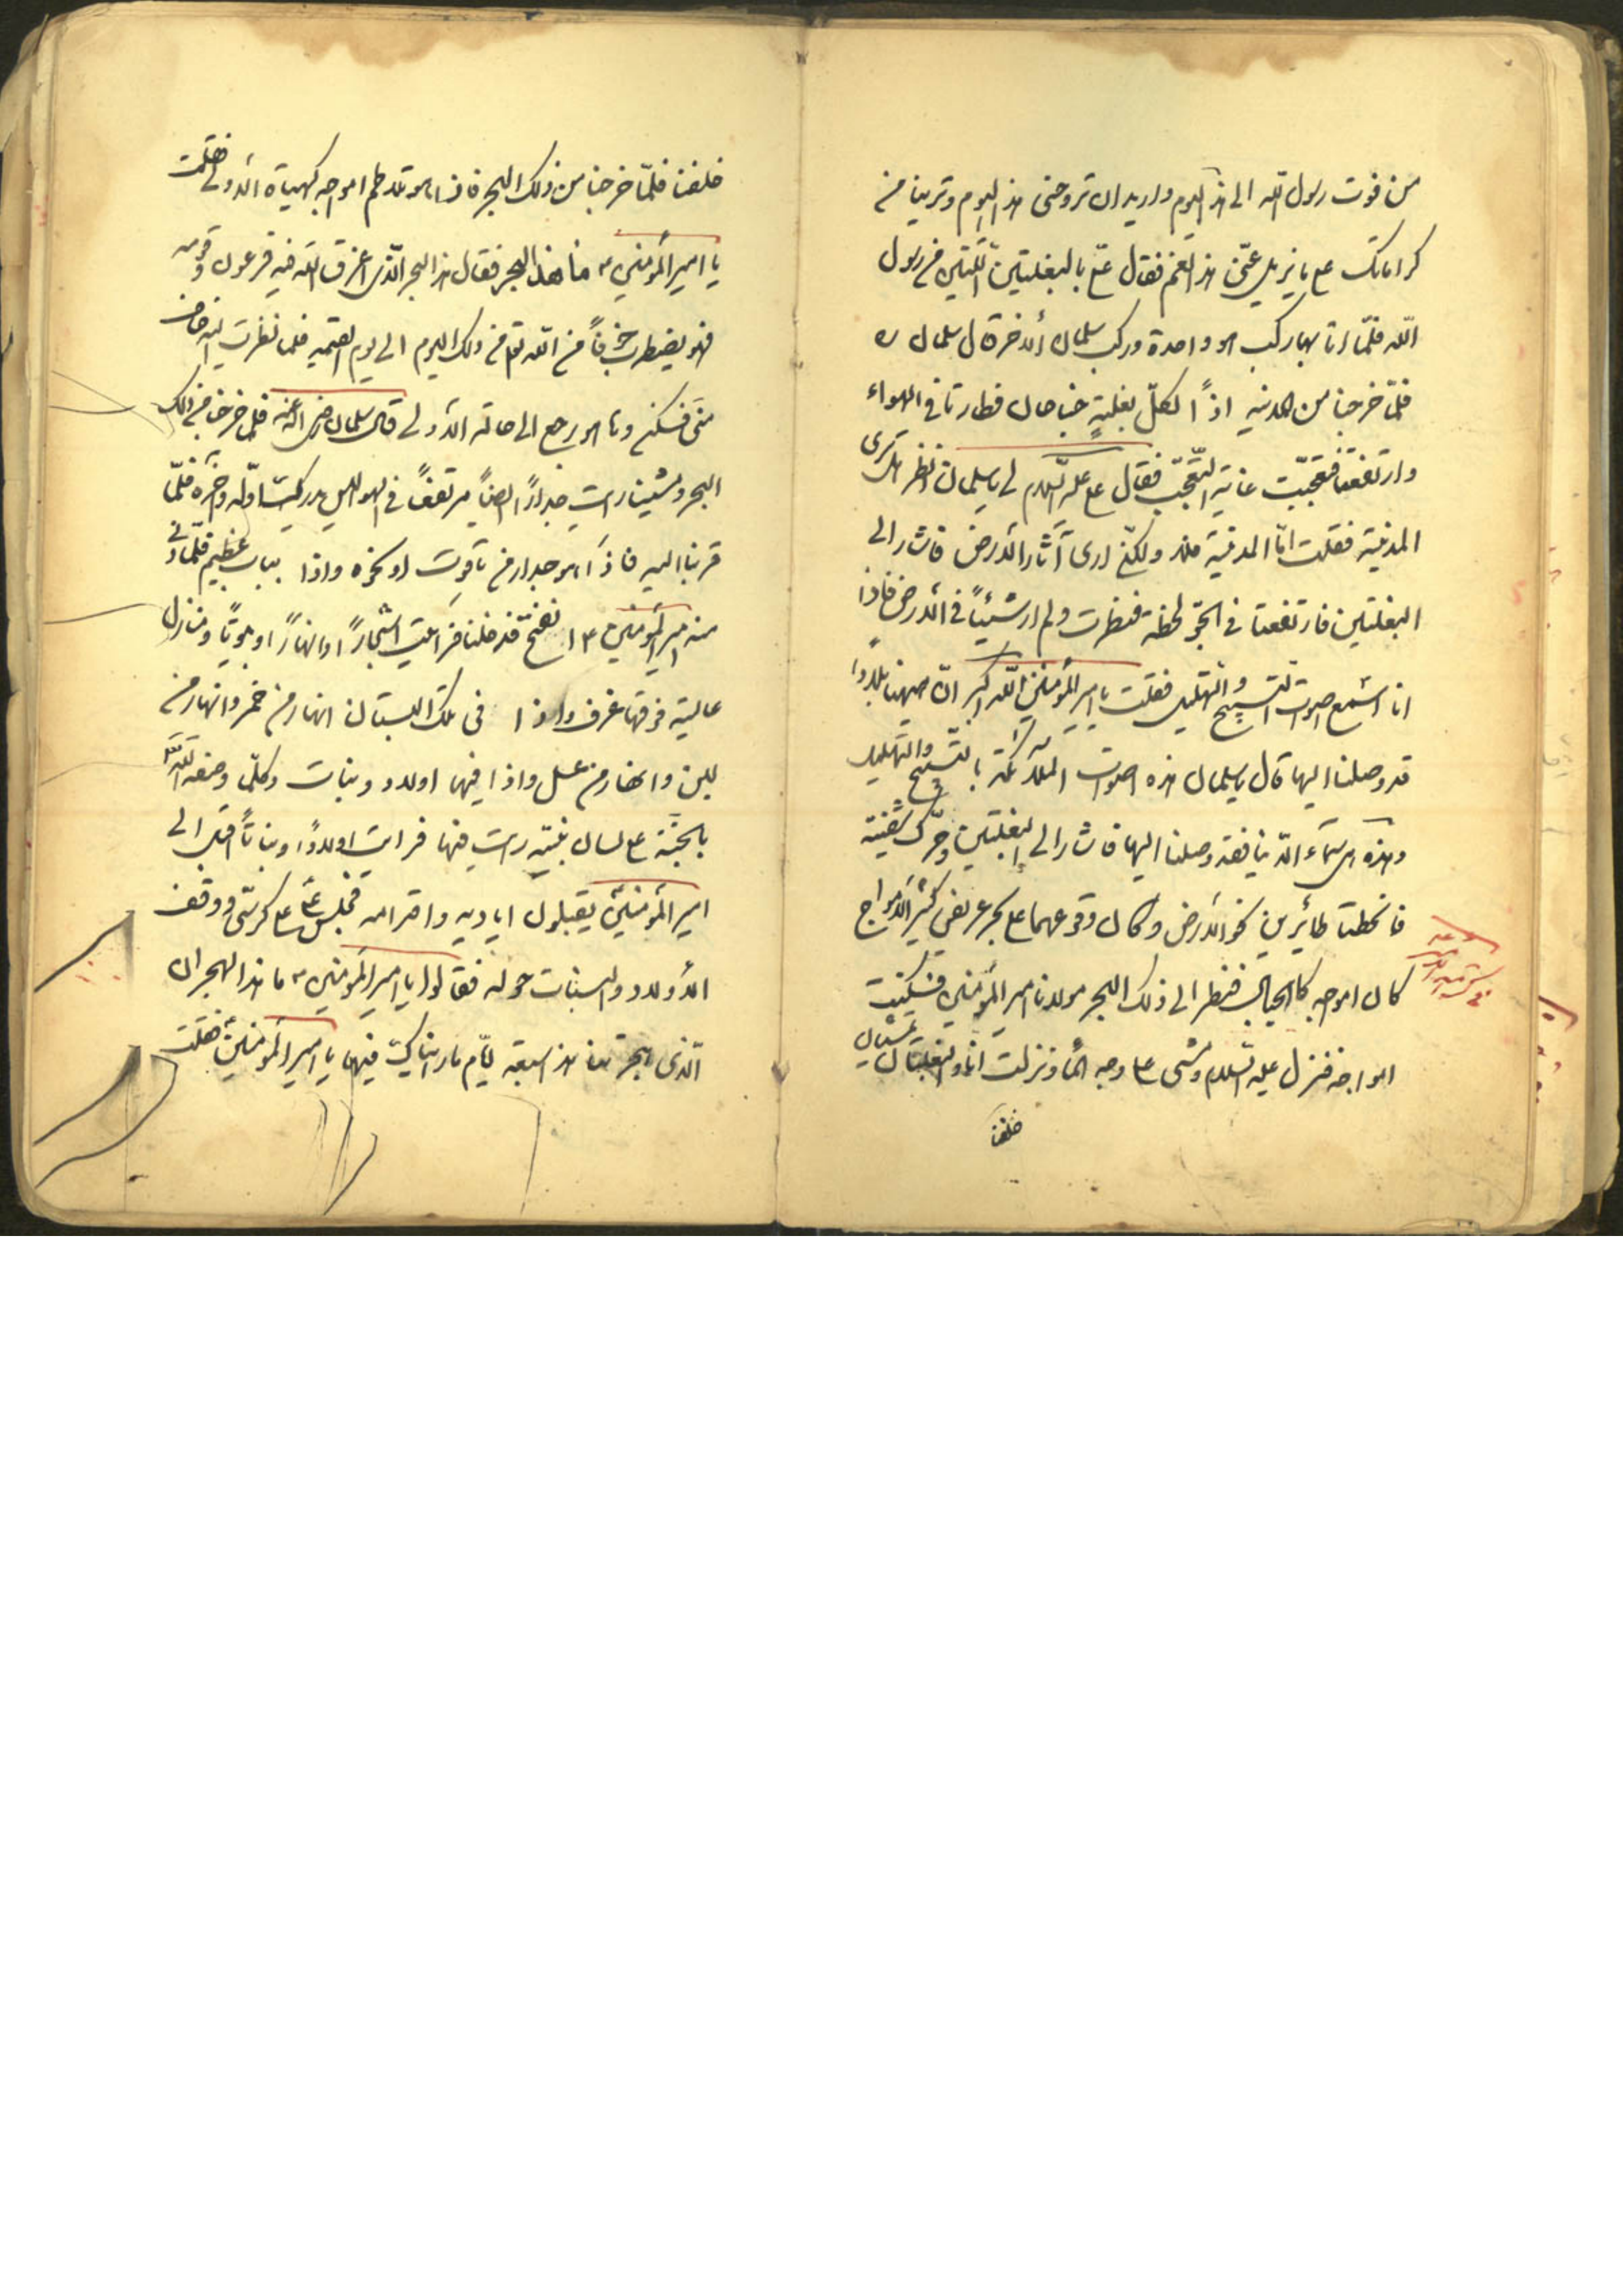 من فوت رسول الله الى هذا اليوم واريد ان تروحنى هذا اليوم وترينا من
كراماتك ما يزيل عنى هذا الغم فقال ع بالبغلتين اللتين من رسول
الله فلما اتا بهما ركب هو واحدة وركب سلمان الاخرة قال سلمان ره
فلما خرجنا من المدينه اذاً لكل بغلةٍ جناحان فطارتا فى الهواء
وارتفعتا فتعجبت غاية التعجب فقال على عليه السلام لى يا سلمان انظر هل ترى
المدينة فقلت امّا المدينة فلا ولكن ارى آثار الارض فاشار الى
البغلتين فارتفعتا فى الجو لحظة فنظرت ولم ار شيئاً فى الارض فاذا
انا اسمع اصوات التسبيح والتهليل فقلت يا امير المؤمنين الله اكبر ان ههنا بلاداً
قد وصلنا اليها قال يا سلمان هذه اصوات الملائكة بالتسبيح والتهليل
وهذه هى سماء الدنيا فقد وصلنا اليها فاشار الى البغلتين وحرك شفتيه
فانحطتا طائرين نحو الارض وكان وقوعهما على بحر عريض كثير الامواج
كان امواجه كالجبال فنظر الى ذلك البحر مولانا امير المؤمنين فسكنت
امواجه فنزل عليه السلام ومشى على وجه الماء ونزلت انا والبغلتان تمشيان
خلفنا
خلفنا فلما خرجنا من ذلك البحر فاذا هو تلاطم امواجه كهيئاة الاولى فقلت
يا امير المؤمنين ما هذا البحر فقال هذا البحر الذى اغرق الله فيه فرعون وقومه
فهو يضطرب خوفاً من الله تع من ذلك اليوم الى يوم القيمه فلما نظرت اليه خاف
منى فسكن وها هو رجع الى حالة الاولى قال سلمان رضى الله عنه فلما خرجنا من ذلك
البحر ومشينا رايت جداراً ابيضاً مرتفعاً فى الهواء ليس يدرك اوله وآخره فلما
قربنا اليه فاذا هو جدار من ياقوت او نحوه واذا بباب عظيم فلما دنى
منه امير المؤمنين ع انفتح فدخلنا فرايت اشجاراً وانهاراً وبيوتاً ومنازل
عالية فوقها غرف واذا فى تلك البستان انهار من خمر وانهار من
لبن وانهار من عسل واذا فيها اولاد وبنات وكلما وصفه الله
بالجنة على لسان نبيه رايت فيها فرايت اولاداً وبناتاً اقبل الى
امير المؤمنين يقبلون اياديه واقدامه فجلس ع على كرسى ووقف
الاولاد والبنات حوله فقالوا يا امير المؤمنين ما هذا الهجران
الذى هجرتنا هذا سبعة ايام ما رايناك فيها يا امير المؤمنين فقلت